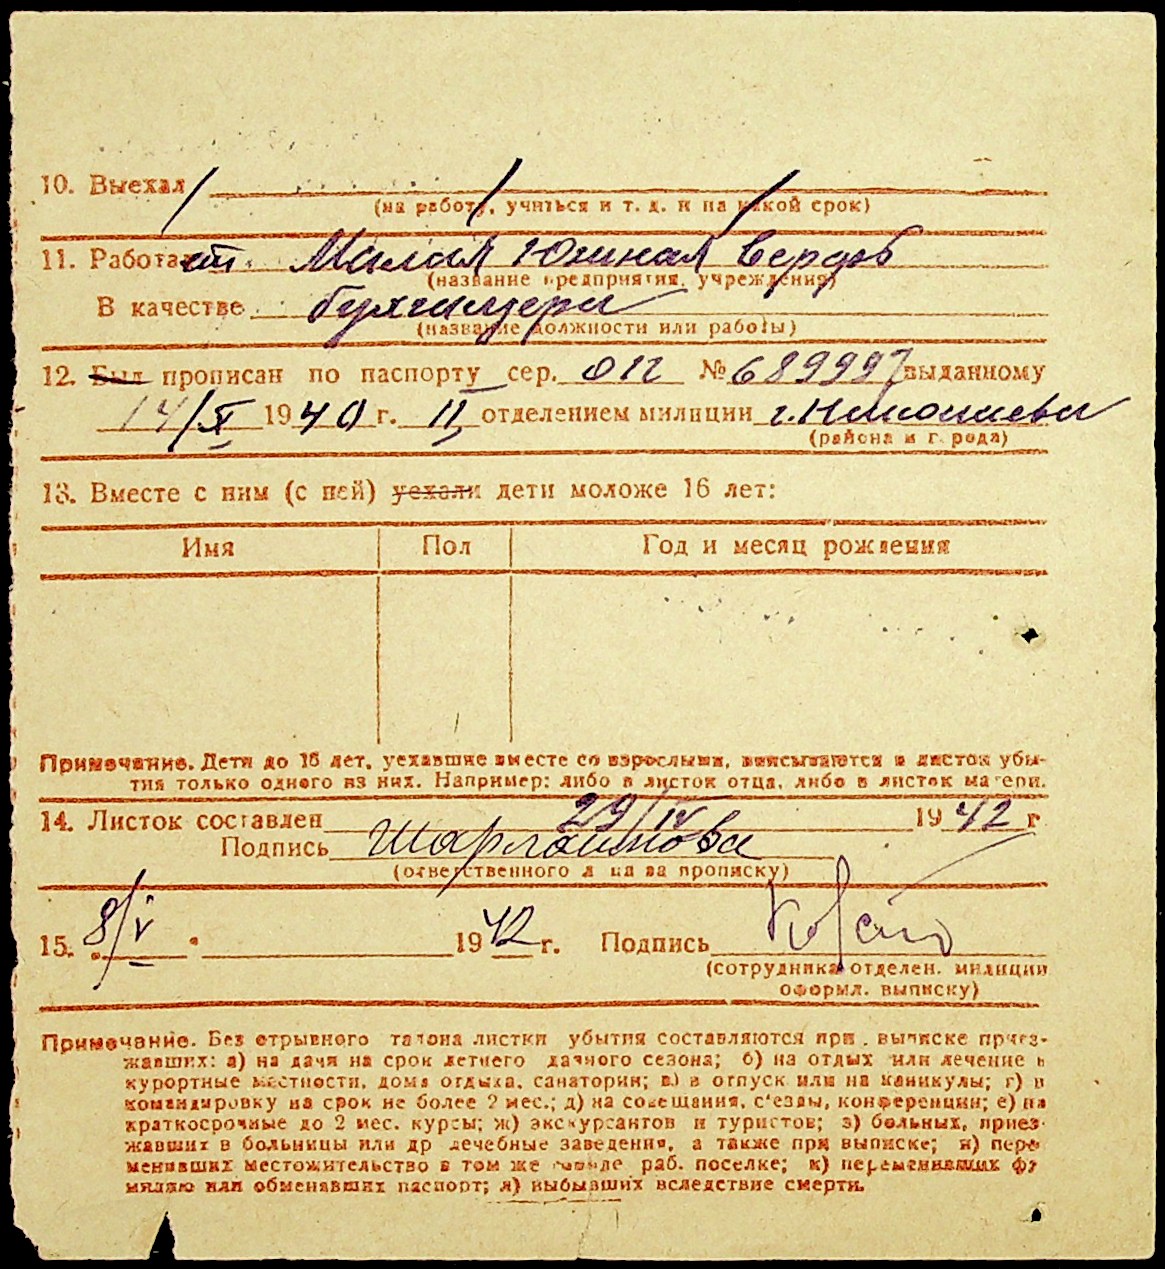 10. Выехал
(на работу, учиться и т. д. и на какой срок)
11. Работает. Малая Южная верфь
(название предприятия, учреждения)
В качестве бухгалтера
(название должности или работы)
12. Был прописан по паспорту сер. ОПГ № 689997 выданному
14/X 1940 г. II отделением милиции г. Николаева
(района и города)
13. Вместе с ним (с ней) уехали дети моложе 16 лет:
Имя Пол Год и месяц рождения
Примечание. Дети до 16 лет, уехавшие вместе со взрослыми, вписываются в листок убы-
тия только одного из них. Например: либо в листок отца, либо в листок матери.
14. Листок составлен 29/IV 1942 г
Подпись
(ответственного лица за прописку)
15. 8/V 1942 г. Подпись
(сотрудника отделен. милиции
оформл. выписку)
Примечание. Без отрывного талона листки убытия составляются при выписке приез-
жавших: а) на дачи на срок летнего дачного сезона; б) на отдых или лечение в
курортные местности, дома отдыха, санатории; в) в отпуск или на каникулы; г) в
командировку на срок не более 2 мес.; д) на совещания, с'езды, конференции; е) на
краткосрочные до 2 мес. курсы; ж) экскурсантов и туристов; з) больных, приез-
жавших в больницы или др лечебные заведения, а также при выписке; и) пере
менивших местожительство в том же городе, раб. поселке; к) переменивших фа
милию или обменявших паспорт; л) выбывших вследствие смерти.